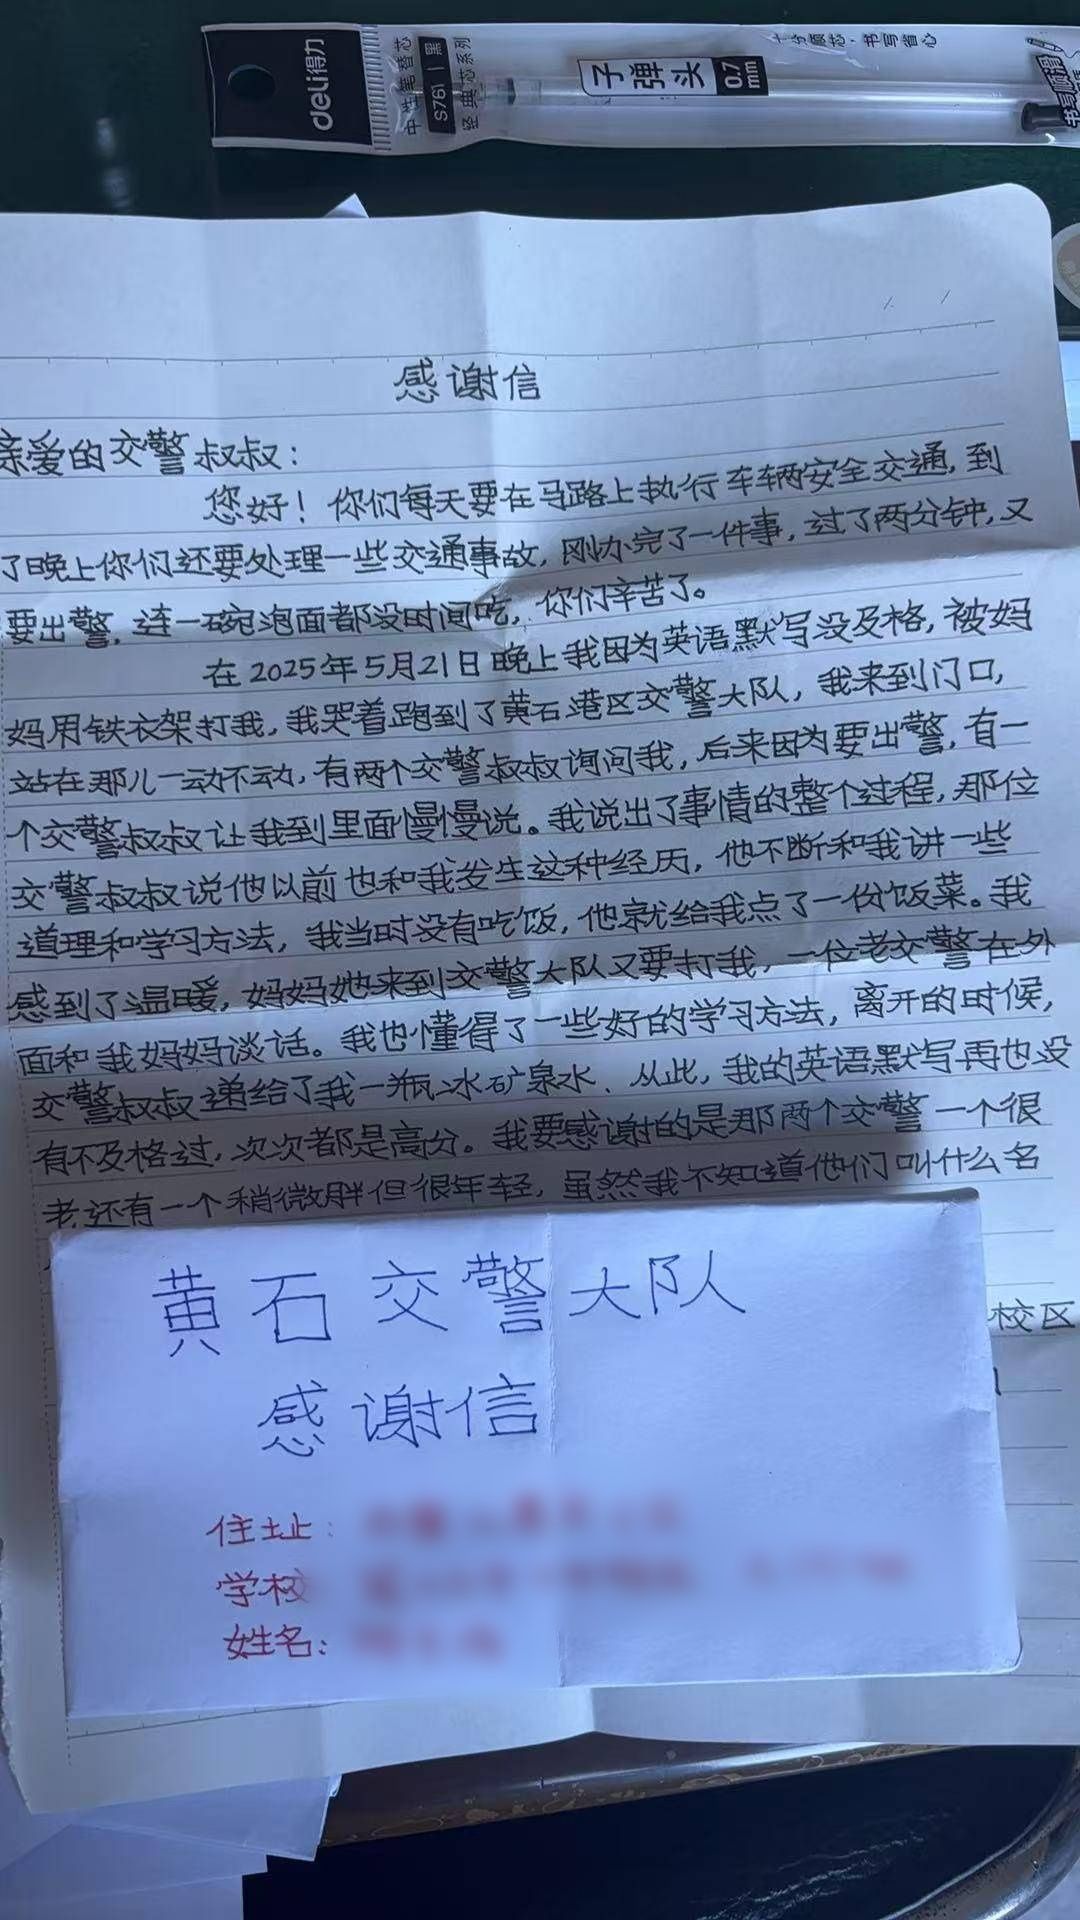 deli得力
中性笔替芯
S761 | 黑
经典芯系列
子弹头
0.7mm
书写顺滑
感谢信
亲爱的交警叔叔：
您好！你们每天要在马路上执行车辆安全交通，到
了晚上你们还要处理一些交通事故，刚办完了一件事，过了两分钟，又
要出警，连一碗泡面都没时间吃，你们辛苦了。
在2025年5月21日晚上我因为英语默写没及格，被妈
妈用铁衣架打我，我哭着跑到了黄石港区交警大队，我来到门口，
站在那儿一动不动，有两个交警叔叔询问我，后来因为要出警，有一
个交警叔叔让我到里面慢慢说。我说出了事情的整个过程，那位
交警叔叔说他以前也和我发生这种经历，他不断和我讲一些
道理和学习方法，我当时没有吃饭，他就给我点了一份饭菜。我
感到了温暖，妈妈她来到交警大队又要打我，一位老交警在外
面和我妈妈谈话。我也懂得了一些好的学习方法，离开的时候，
交警叔叔递给了我一瓶冰矿泉水、从此，我的英语默写再也没
有不及格过，次次都是高分。我要感谢的是那两个交警一个很
老还有一个稍微胖但很年轻，虽然我不知道他们叫什么名
校区
黄石交警大队
感谢信
住址：
学校
姓名：